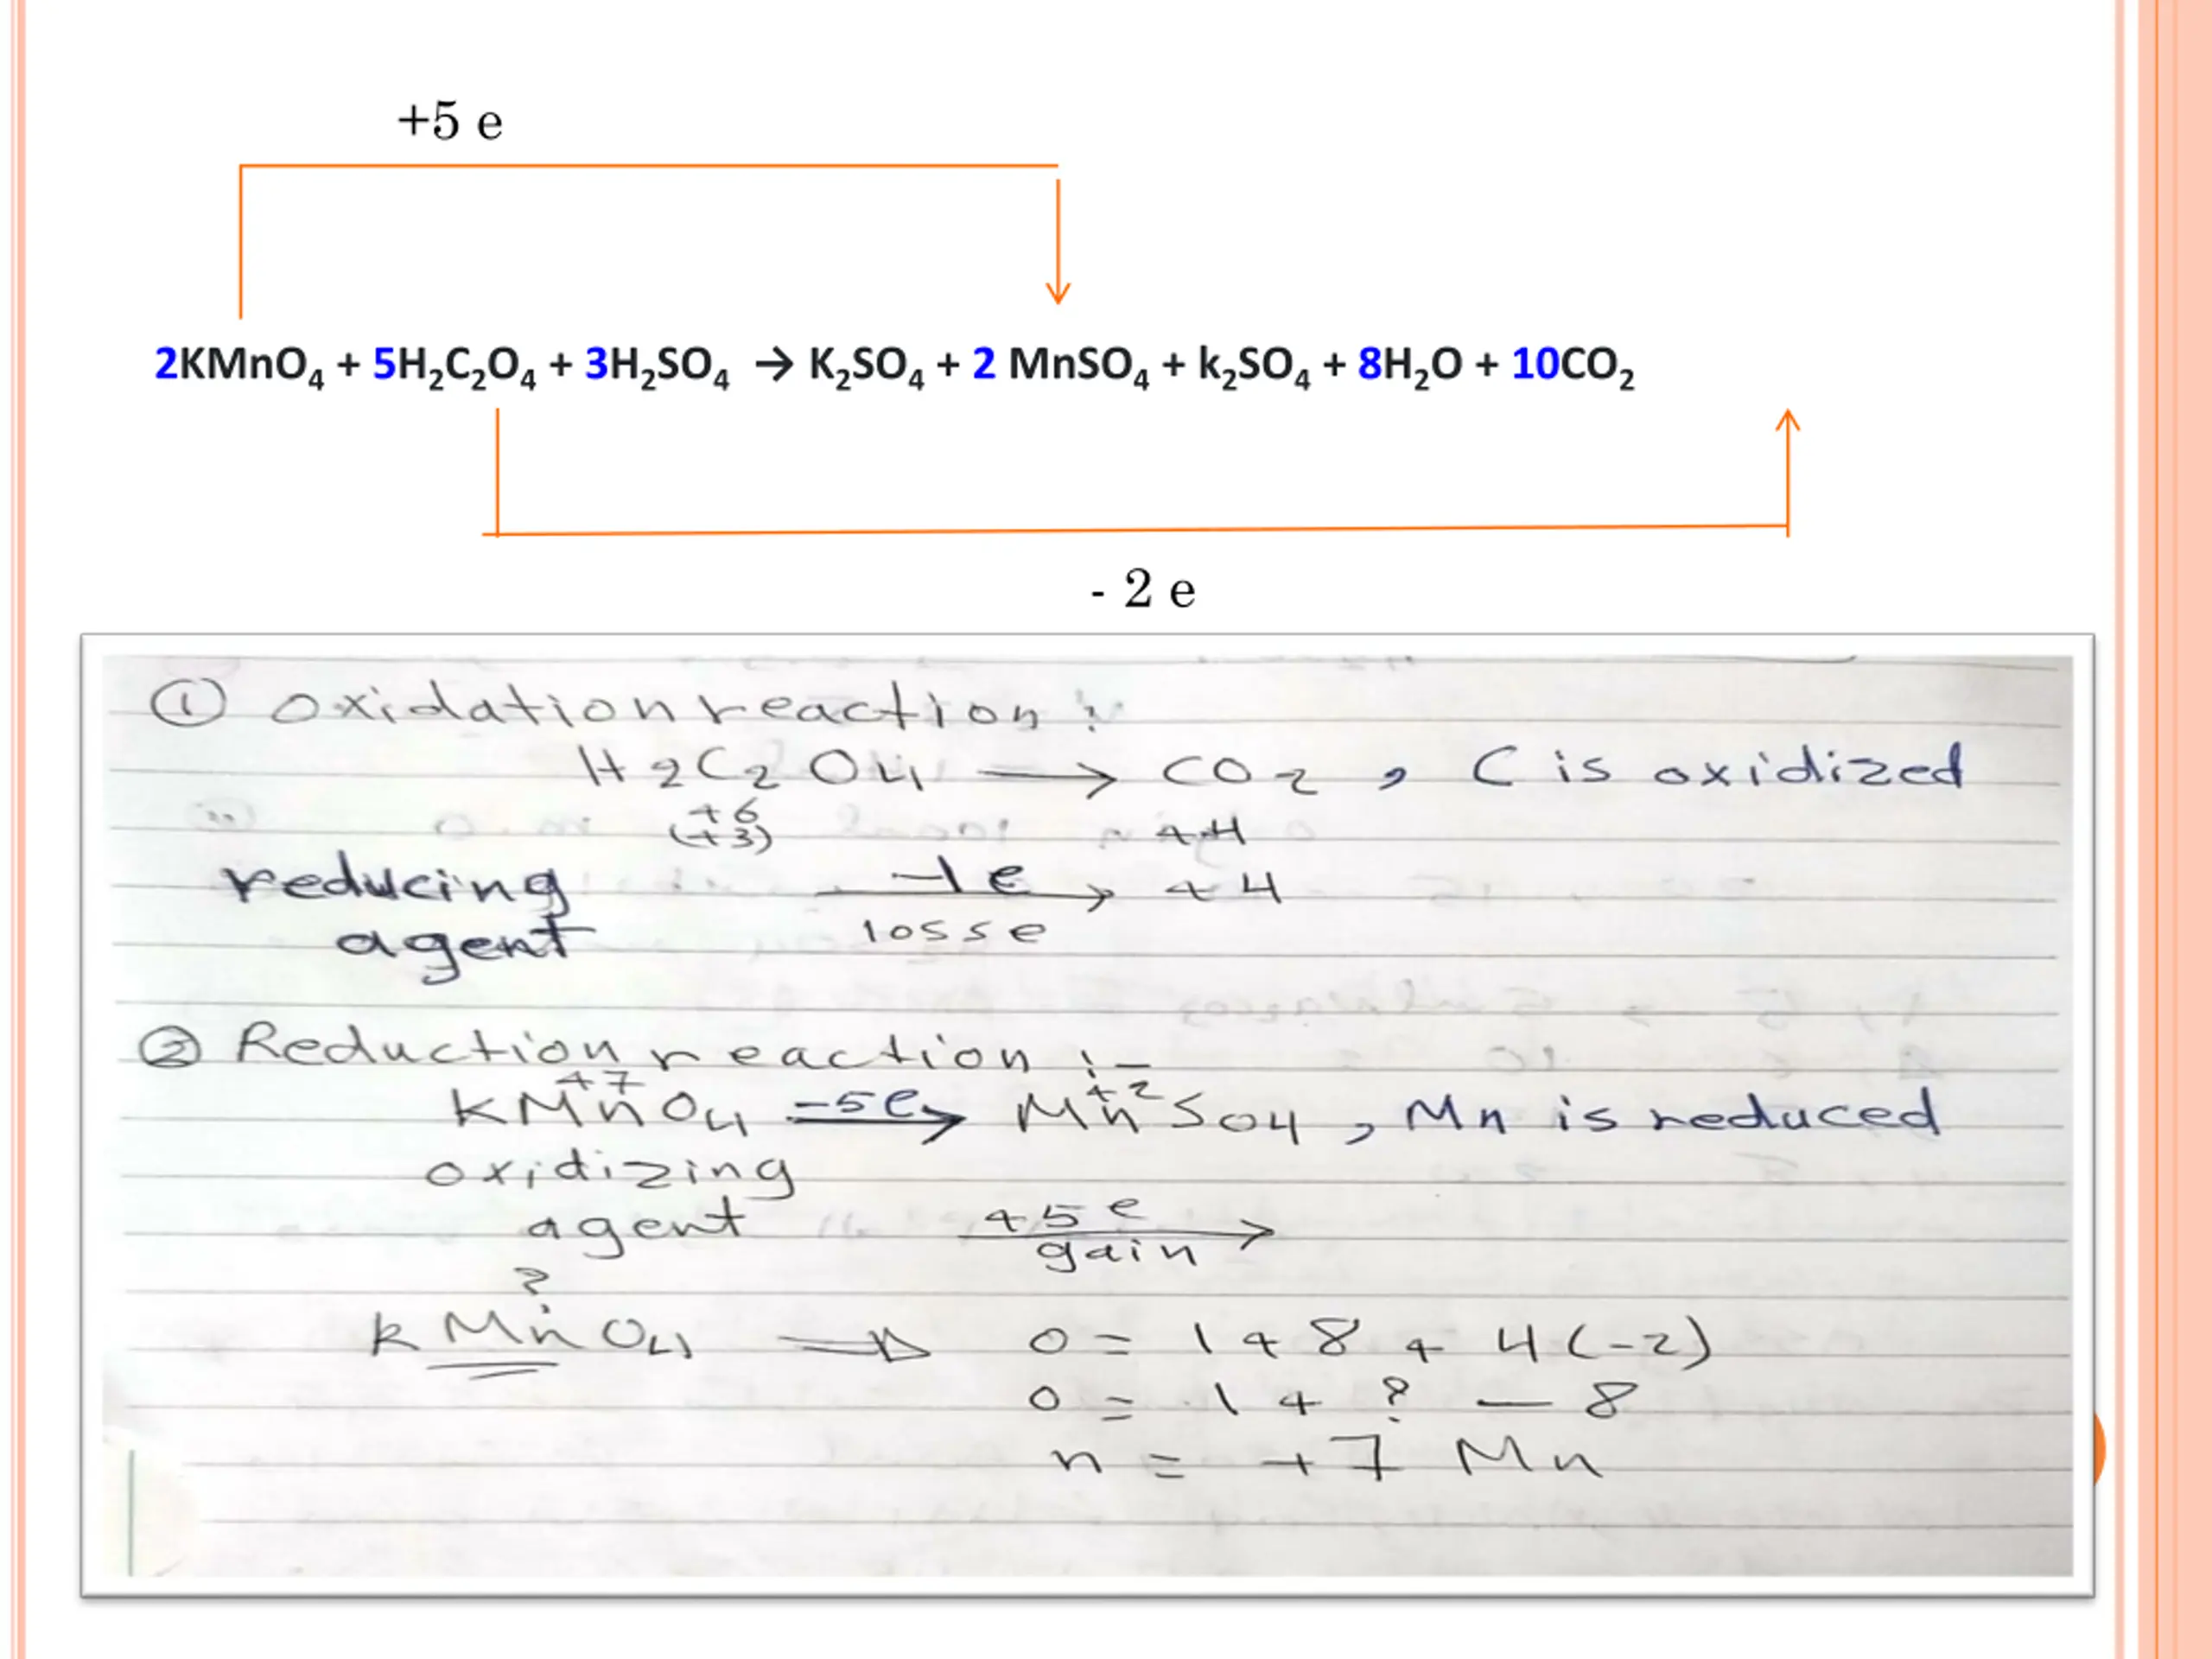 +5 e
2KMnO₄ + 5H₂C₂O₄ + 3H₂SO₄ → K₂SO₄ + 2 MnSO₄ + k₂SO₄ + 8H₂O + 10CO₂
- 2 e
① oxidation reaction :
H2C2O4 → CO2 , C is oxidized
+6
(+3) +4
reducing -1e → +4
agent losse
② Reduction reaction :-
+7 +2
KMnO4 -5e → MnSO4 , Mn is reduced
oxidizing
agent +5e →
gain
?
KMnO4 ⇒ 0 = 1 + 8 + 4(-2)
0 = 1 + ? - 8
n = +7 Mn